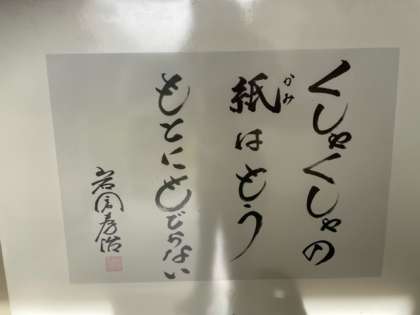 くしゃくしゃの
紙はもう
かみ
もとにもどらない